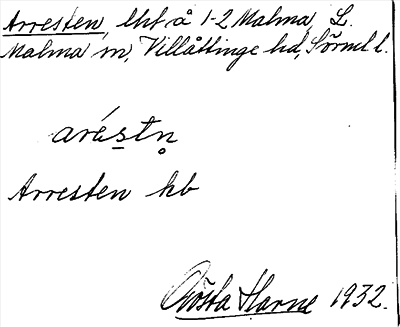 Arresten, lht å 1-2 Malma, L.
Malma sn, Villåttinge hd, Sörml l.
aréstn̥
Arresten kb
Gösta Harne 1932.